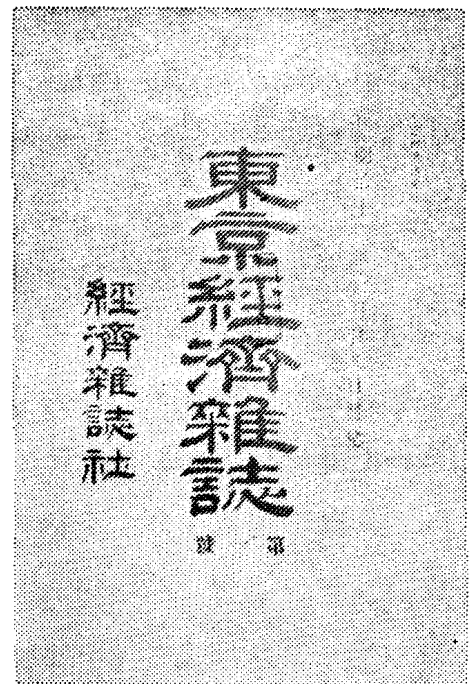 東京經濟雜誌
第 號
經濟雜誌社